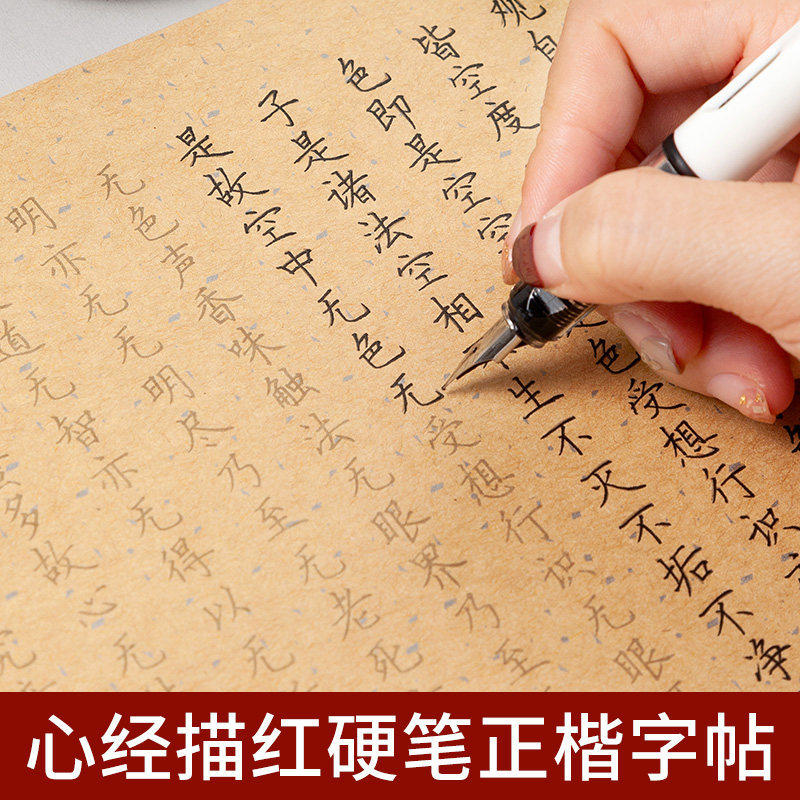 观自
皆空度
色即是空空色受想行识
子是诸法空相不生不灭不垢不净
是故空中无色无受想行识无眼
无色声香味触法无眼界乃至
明亦无无明尽乃至无老死
道无智亦无得以无
多故心无
心经描红硬笔正楷字帖